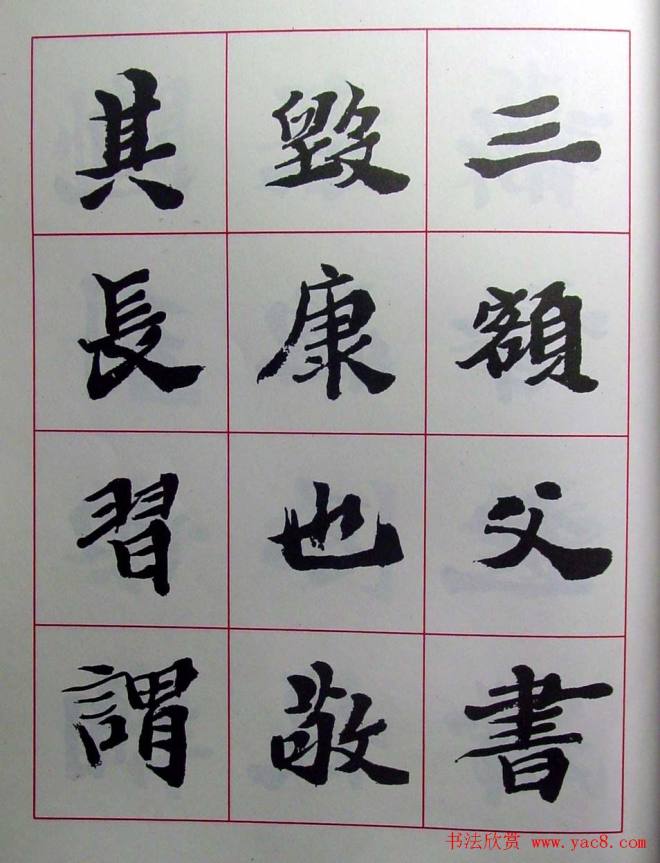 三額父書
毀康也敬
其長習謂
书法欣赏 www.yac8.com